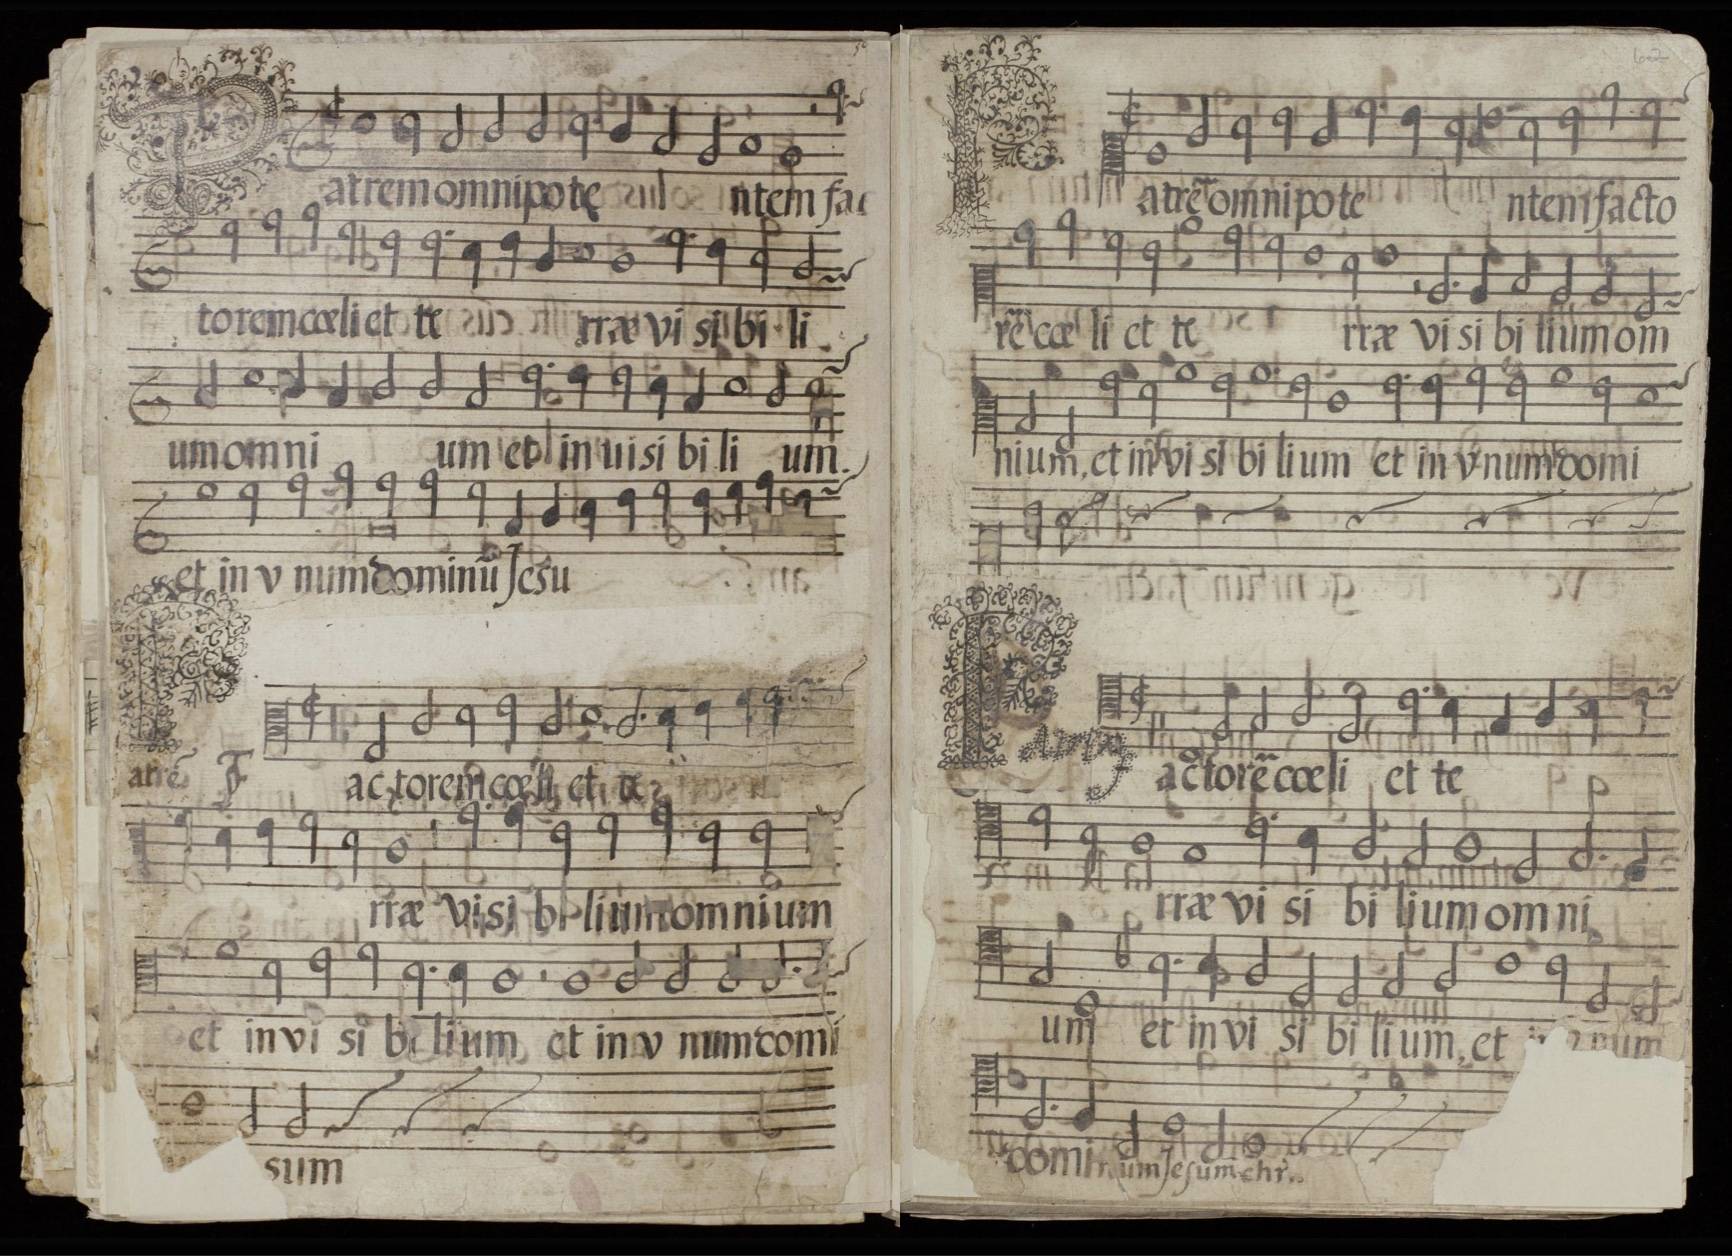 Patrem omnipote ntem fac
torem cœli et te rræ vi si bi li
um omni um et in uisi bi li um.
et in v num dominũ Jesu
Patrẽ F actorem cœli et te
rræ visi bi lium omnium
et invi si bi lium et in v num domi
sum
62
Patrẽ omnipote ntem facto
rẽ cœ li et te rræ vi si bi lium om
nium, et invi si bi lium et in v num domi
P actorẽ cœli et te
rræ vi si bi lium om ni
um et in vi si bi li um, et num
dominum Jesum chr..